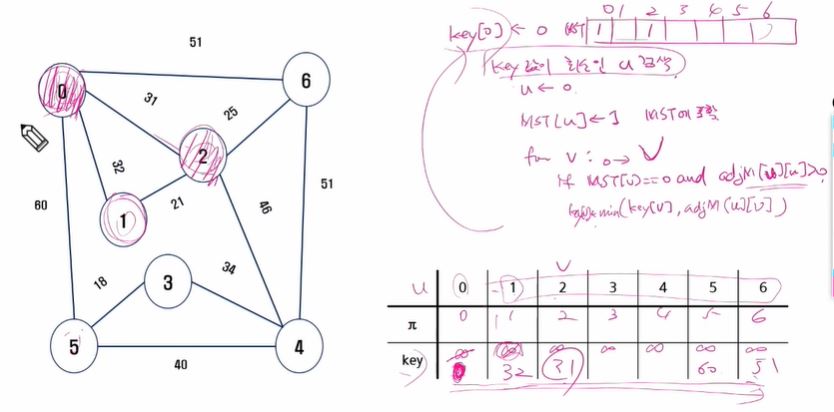 51
0
6
31
25
2
32
21
1
60
51
46
3
18
34
5
4
40
key[0] ← 0 MST
0 1 2 3 4 5 6
1 1
key 값이 최소인 u 검색
u ← 0
MST[u] ← 1 MST에 포함
for v : 0 → V
if MST[v]==0 and adjM[u][v]>0
min(key[v], adjM[u][v])
V
u 0 1 2 3 4 5 6
π 0 1 2 3 4 5 6
key ∞ ∞ ∞ ∞ ∞ ∞ ∞
0 32 31 60 51